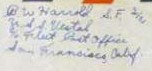 W Harrold S.F. 2/c
U.S.S. Vestal
% Fleet Post Office
San Francisco, Calif.